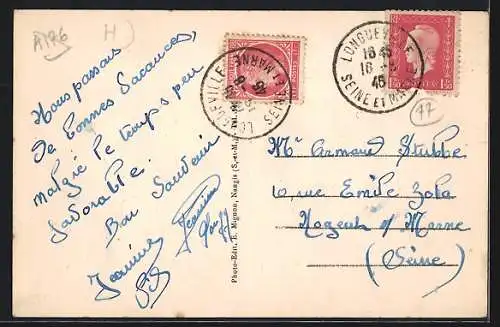 A176 H
Nous passons
de bonnes vacances,
malgré le temps peu
favorable.
Bon Souvenir
Jeanine
Photo-Edit. E. Mignon, Nangis (S.-et-M.)
LONGUEVILLE
SEINE ET MARNE
LONGUEVILLE
16 45
16
45
SEINE ET MARNE
77
Mr Armand Stubbe
10 rue Emile Zola
Nogent s/ Marne
(Seine)